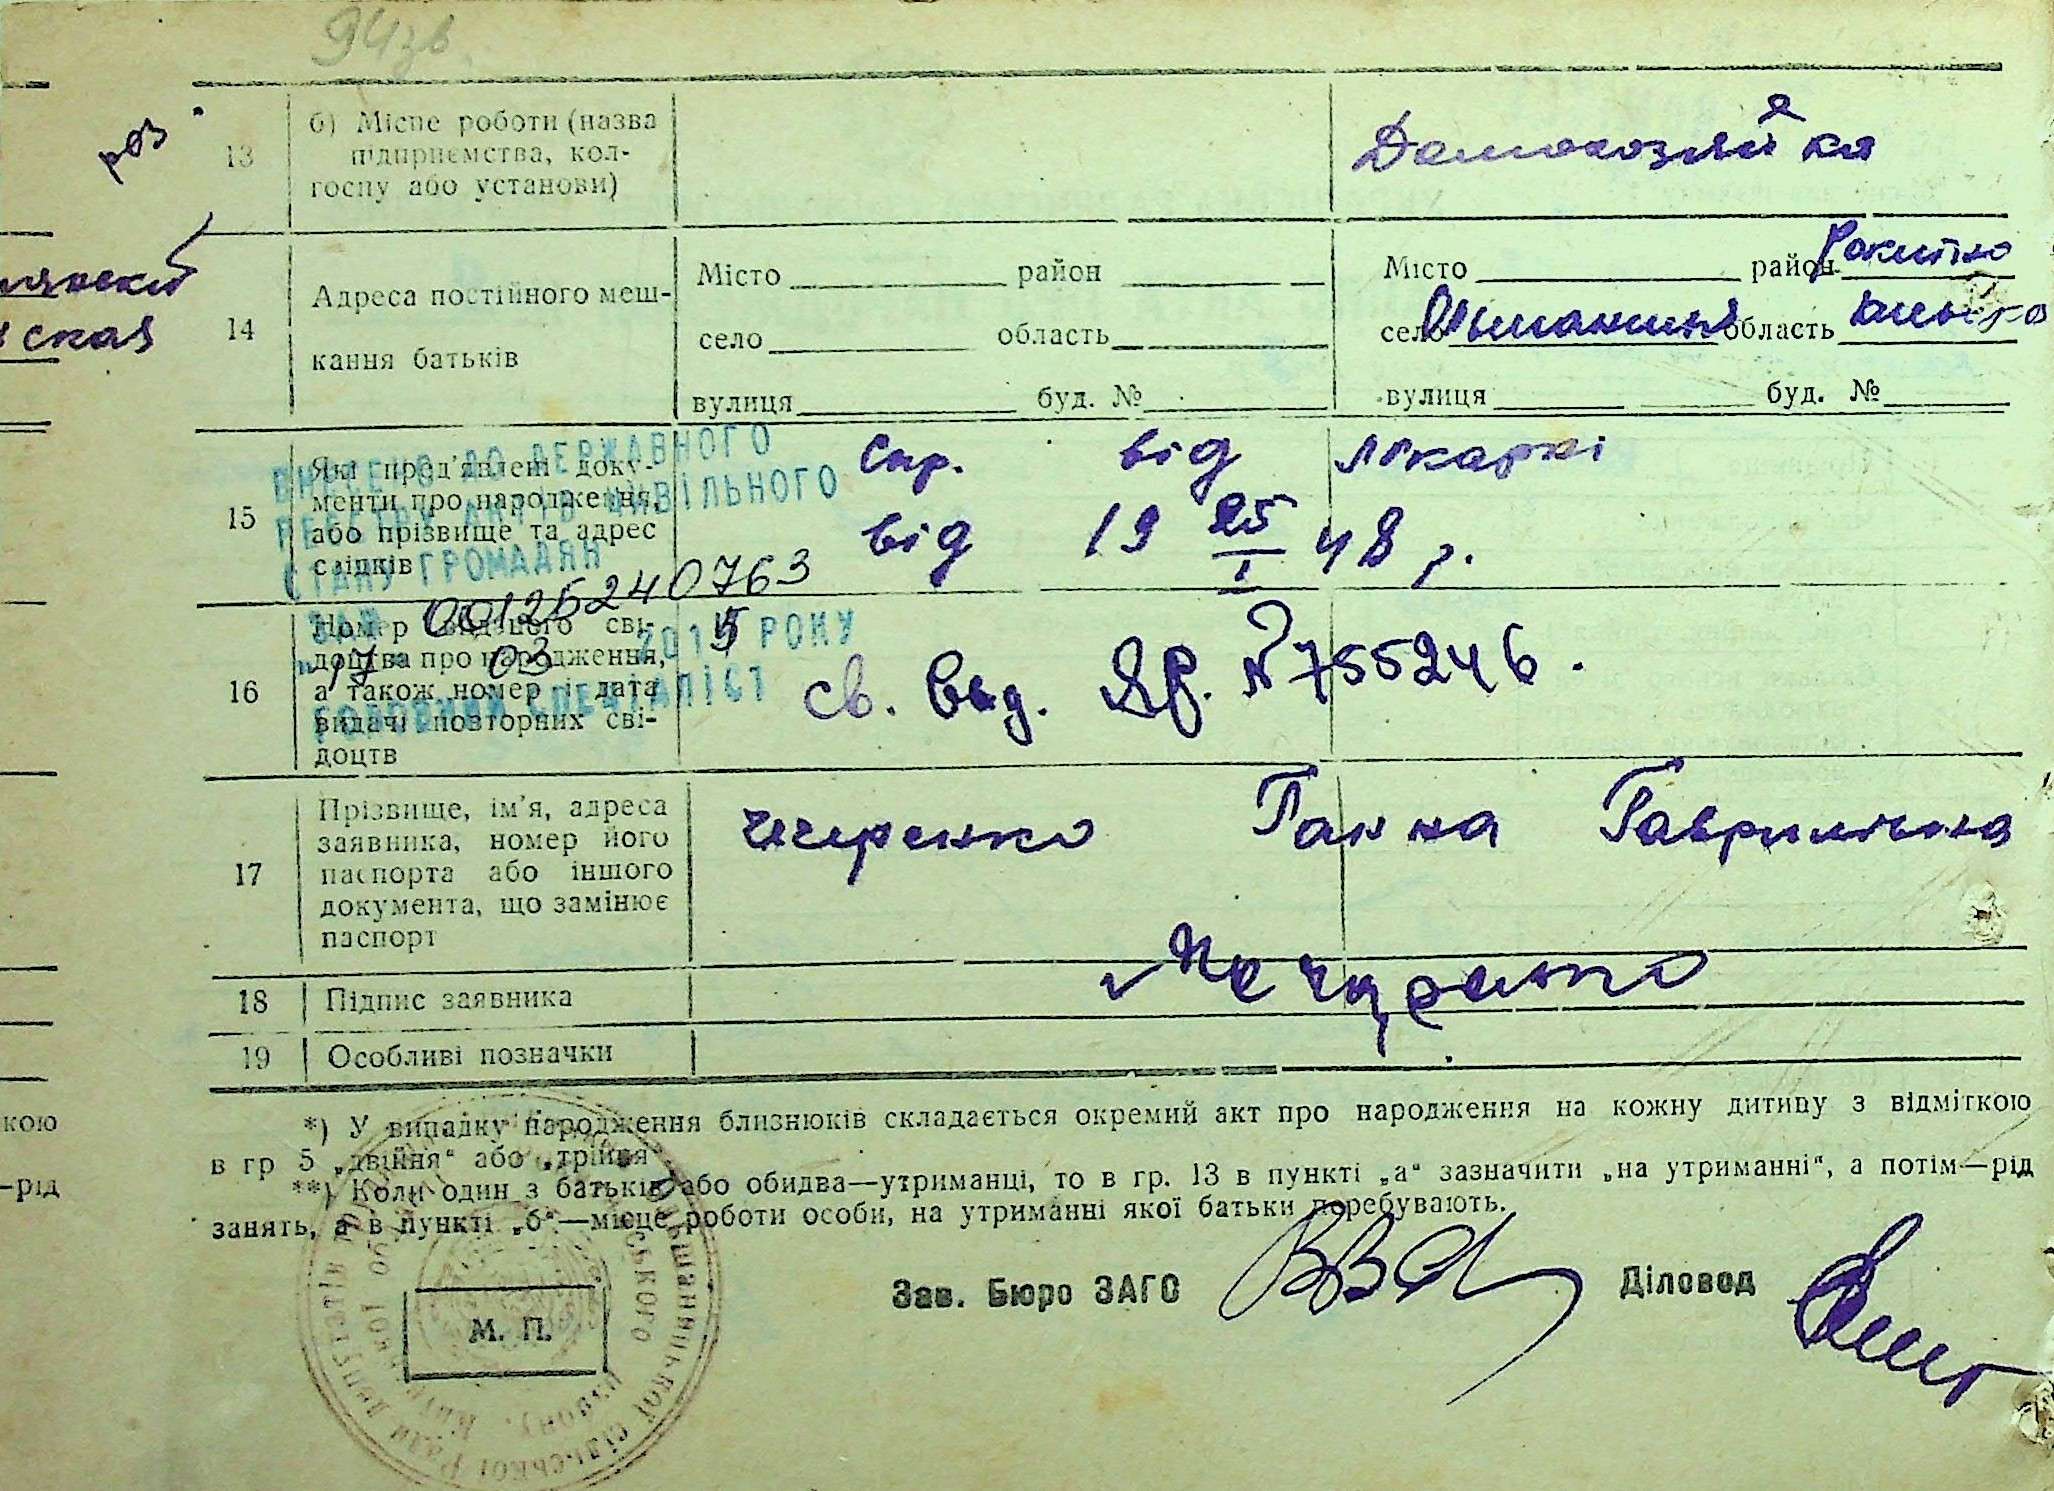 94зв
роз
ская
13
б) Місце роботи (назва
підприємства, кол-
госпу або установи)
Домохозяйка
14
Адреса постійного меш-
кання батьків
Місто район
село область
вулиця буд. №
Місто район Рокитно
село Ольшаниця область
вулиця буд. №
15
Які пред'явлені доку-
менти про народження,
або прізвище та адрес
свідків
спр. від лікаркі
від 19 25/I 48 р.
ВНЕСЕНО ДО ДЕРЖАВНОГО
РЕЄСТРУ АКТІВ ЦИВІЛЬНОГО
СТАНУ ГРОМАДЯН
ЗА № 00125240763
"17" 03 2015 РОКУ
ГОЛОВНИЙ СПЕЦІАЛІСТ
16
Номер виданого сві-
доцтва про народження,
а також номер і дата
видачі повторних сві-
доцтв
св. вид. ЯР. № 755246.
17
Прізвище, ім'я, адреса
заявника, номер його
паспорта або іншого
документа, що замінює
паспорт
Чечеренко Ганна Гаврилівна
18
Підпис заявника
19
Особливі позначки
*) У випадку народження близнюків складається окремий акт про народження на кожну дитину з відміткою
в гр 5 „двійня“ або „трійня“
**) Коли один з батьків або обидва—утриманці, то в гр. 13 в пункті „а“ зазначити „на утриманні“, а потім—рід
занять, а в пункті „б“—місце роботи особи, на утриманні якої батьки перебувають.
кою
—рід
Зав. Бюро ЗАГС
Діловод
М. П.